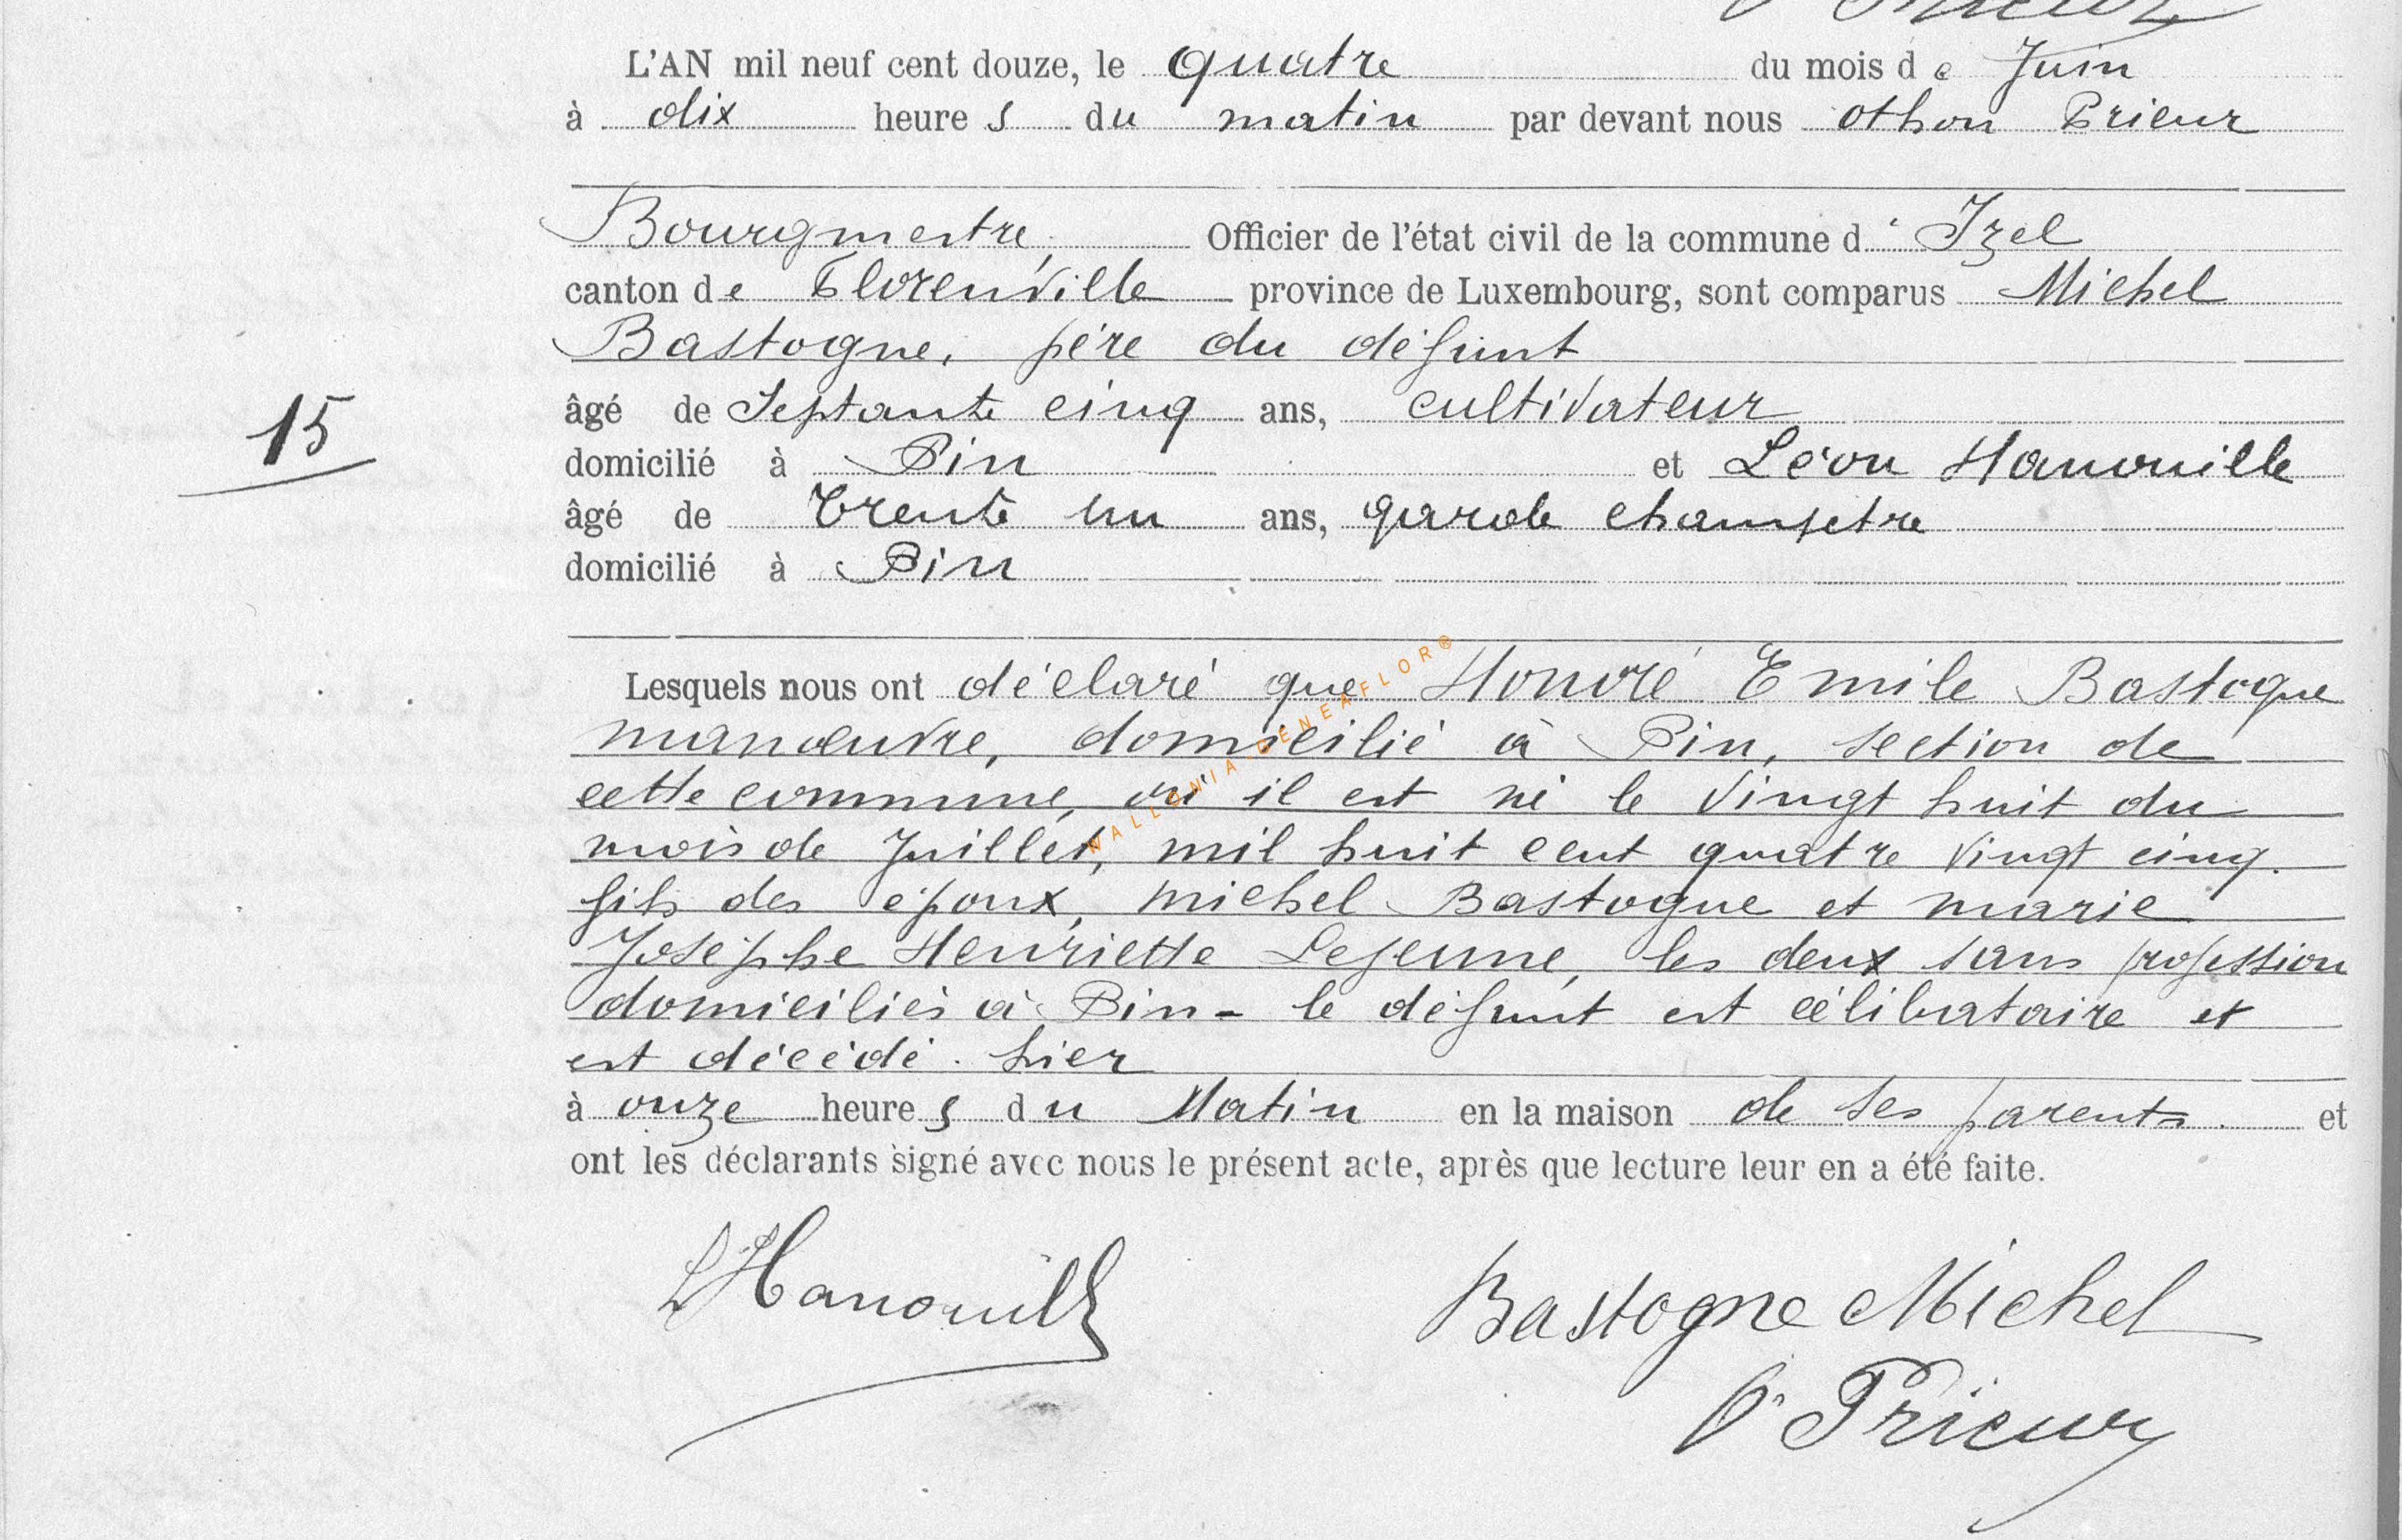 L'AN mil neuf cent douze, le quatre du mois de Juin
à dix heures du matin par devant nous Othon Prieur
Bourgmestre, Officier de l'état civil de la commune d'Izel
canton de Florenville province de Luxembourg, sont comparus Michel
Bastogne, père du défunt
15
âgé de Septante cinq ans, cultivateur
domicilié à Pin et Léon Hanouille
âgé de trente un ans, garde champetre
domicilié à Pin
Lesquels nous ont déclaré que Honoré Emile Bastogne
manœuvre, domicilié à Pin, section de
cette commune, où il est né le vingt huit du
mois de Juillet, mil huit cent quatre vingt cinq.
fils des époux, michel Bastogne et marie
Josephe Henriette Lejeune, les deux sans profession
domiciliés à Pin - le défunt est célibataire et
est décédé. hier
à onze heures du Matin en la maison de ses parents. et
ont les déclarants signé avec nous le présent acte, après que lecture leur en a été faite.
L Hanouille
Bastogne Michel
O. Prieur
WALLONIA-GENEAFLOR®